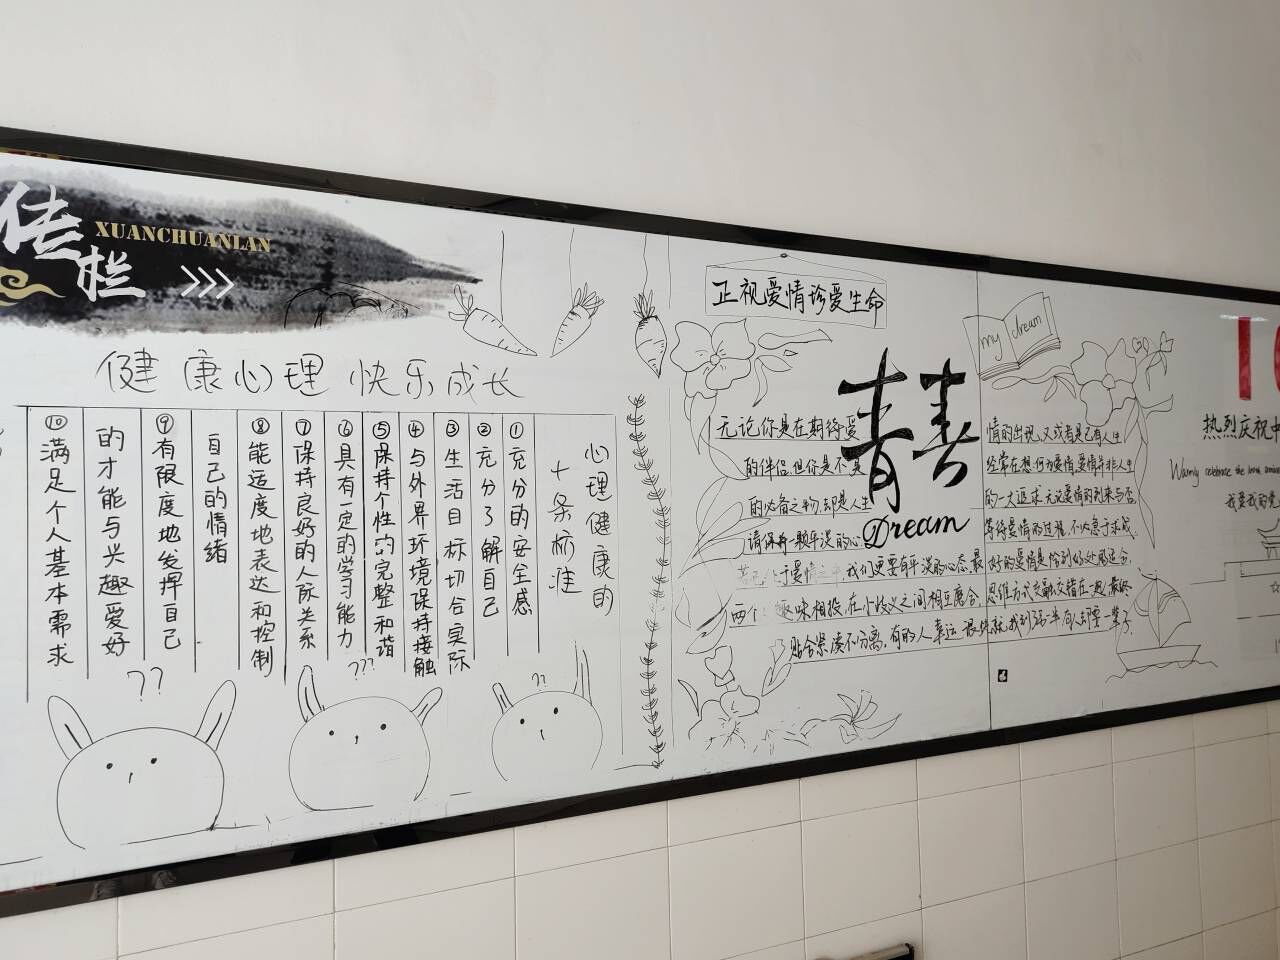 传
栏
XUANCHUANLAN
健康心理 快乐成长
心理健康的
十条标准
①充分的安全感
②充分了解自己
③生活目标切合实际
④与外界环境保持接触
⑤保持个性的完整和谐
⑥具有一定的学习能力
⑦保持良好的人际关系
⑧能适度地表达和控制
自己的情绪
⑨有限度地发挥自己
的才能与兴趣爱好
⑩满足个人基本需求
??
???
??
正视爱情珍爱生命
青春
Dream
my dream
无论你是在期待爱
情的出现,又或者是已有人生
的伴侣,但你是不是
经常在想:何为爱情,爱情并非人生
的必备之物,却是人生
的一大追求,无论爱情的到来与否
请保持一颗平淡的心
等待爱情的过程,不必急于求成
我们更要有平淡的心态,最
好的爱情是恰到好处的适合
两个 趣味相投,在小歧义之间相互磨合
思维方式交融交错在一起,最终
贴合紧凑不分离,有的人幸运
一辈子
热烈庆祝中
Warmly celebrate the
我爱我的党